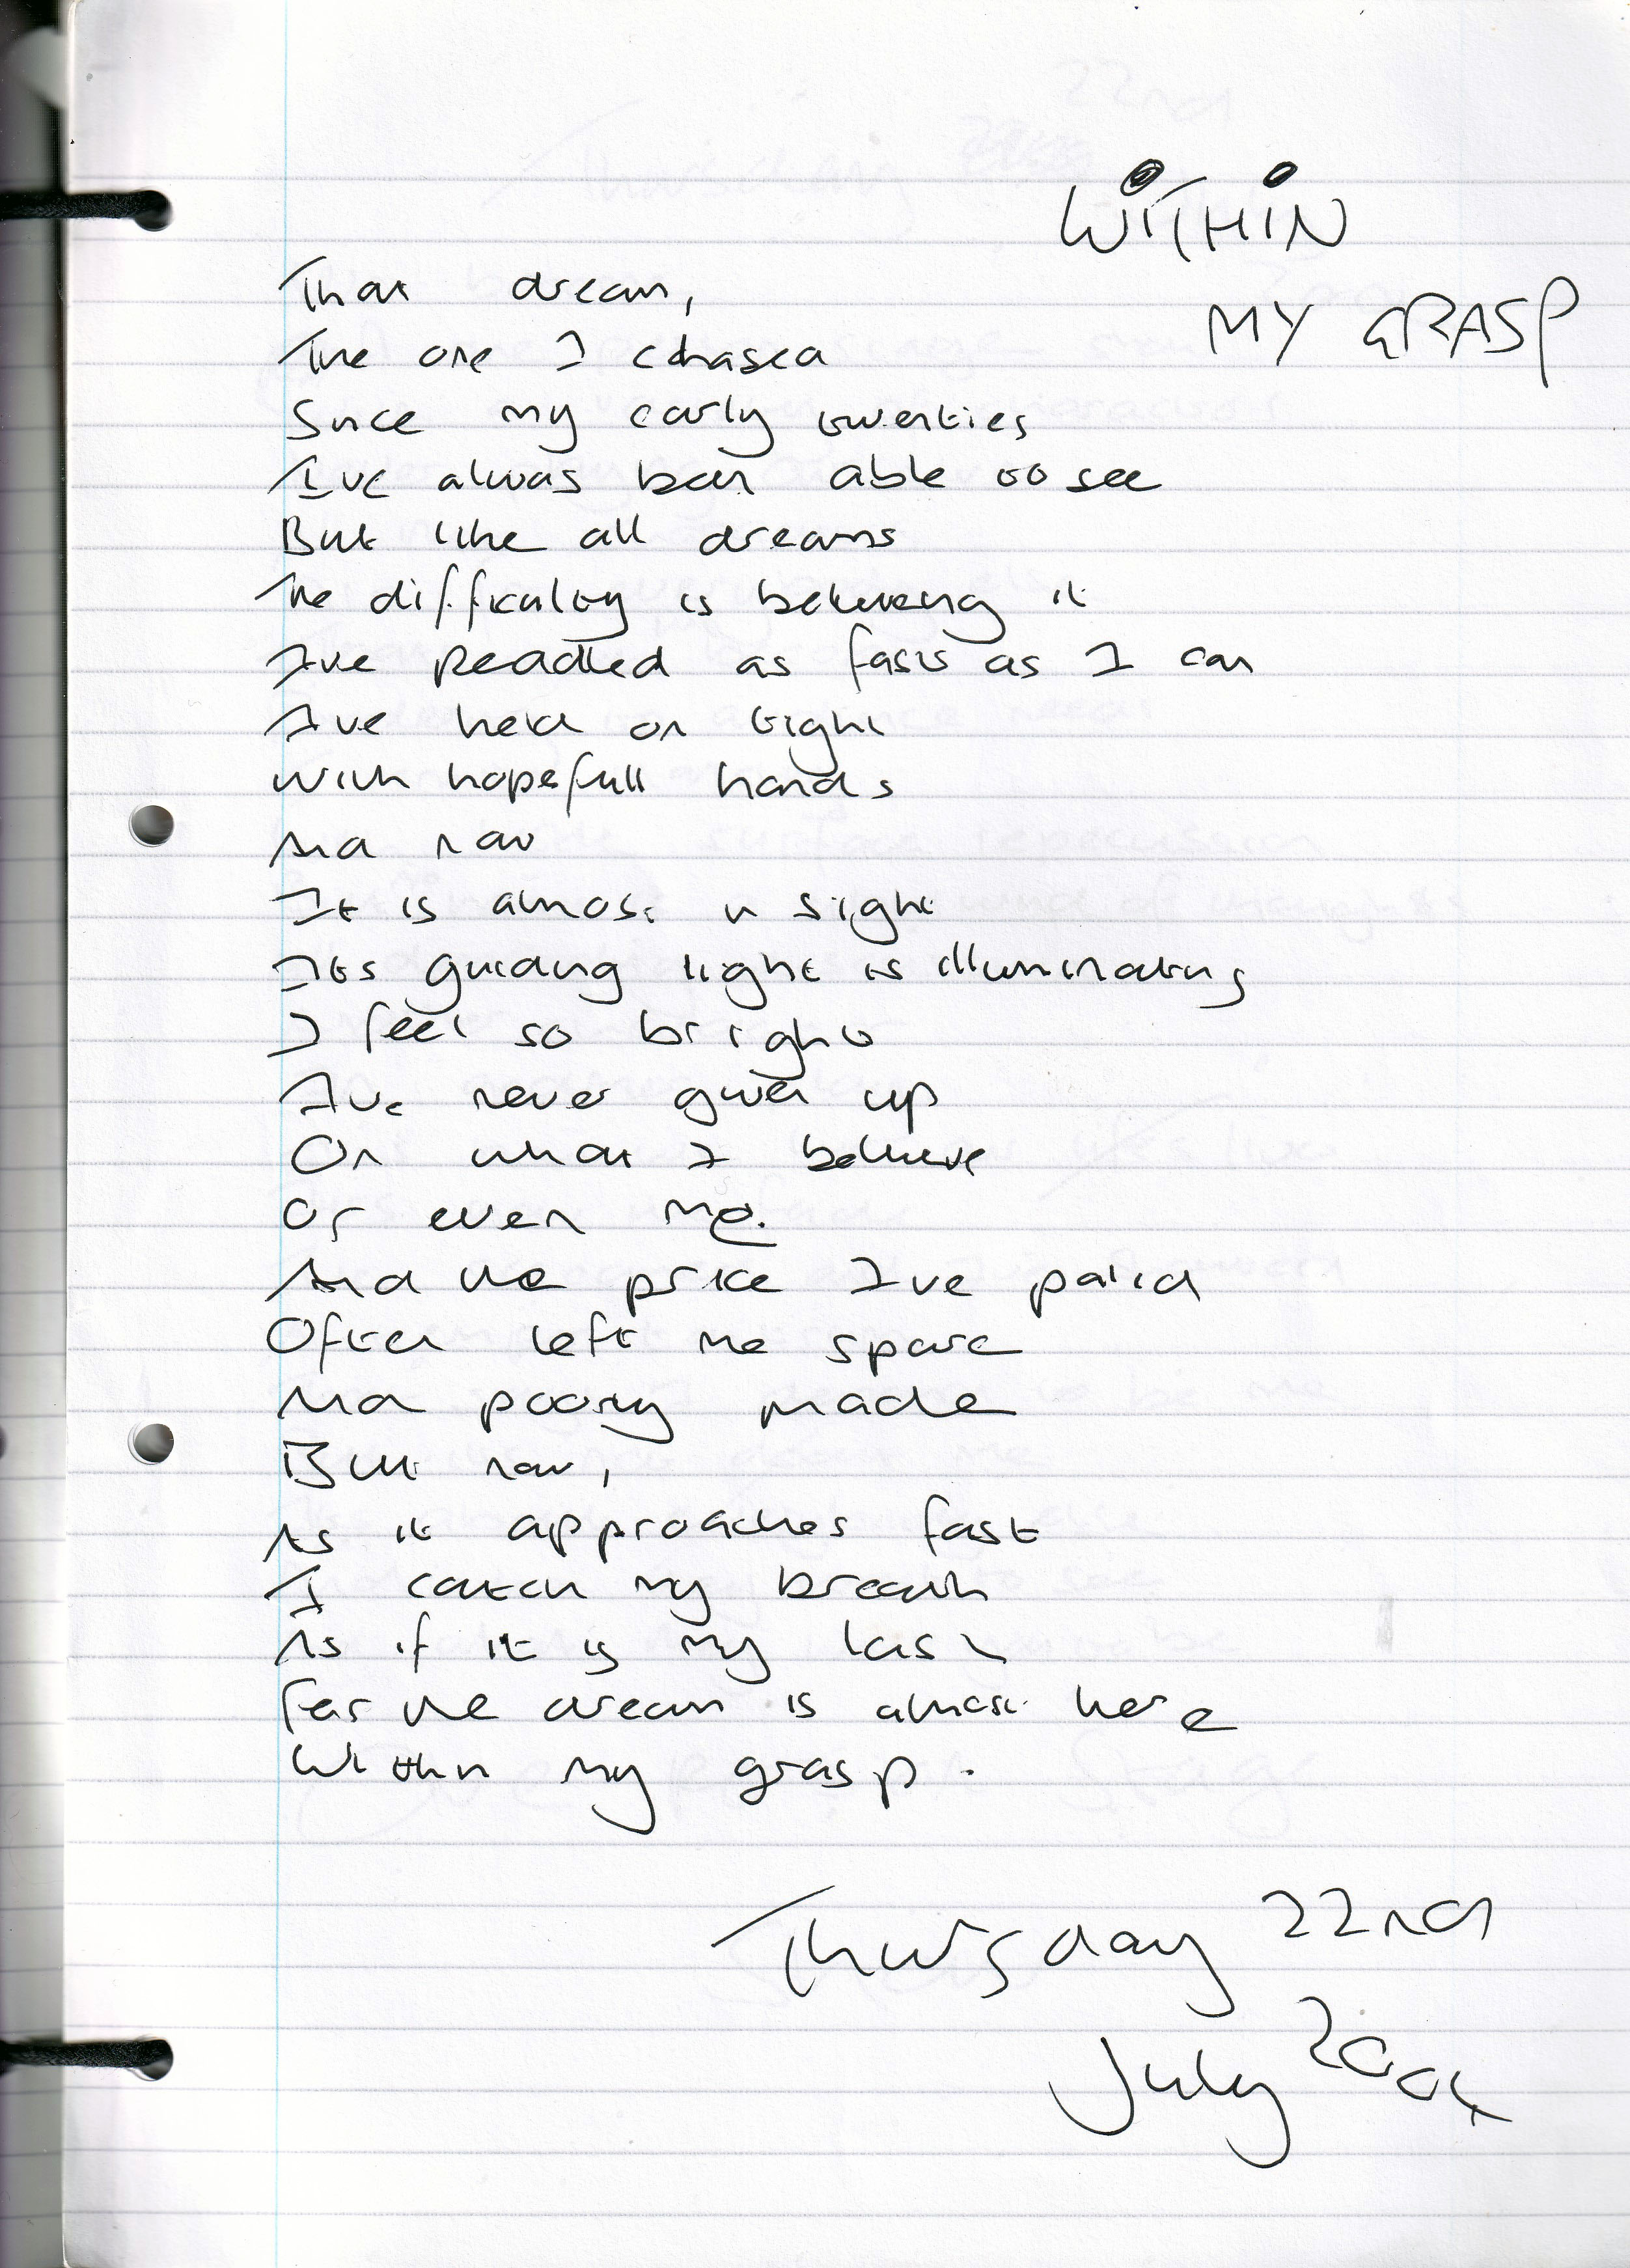 WiTHiN
MY GRASP
That dream,
The one I chased
Since my early twenties
I've always been able to see
But like all dreams
The difficulty is believing it
I've peadled as fast as I can
I've held on tight
With hopefull hands
And now
It is almost in sight
Its guiding light is illuminating
I feel so bright
I've never given up
On what I believe
Or even me.
And the price I've paid
Often left me spare
And poorly made
But now,
As it approaches fast
I catch my breath
As if it is my last
For the dream is almost here
Within my grasp.
Thursday 22nd
July 2004